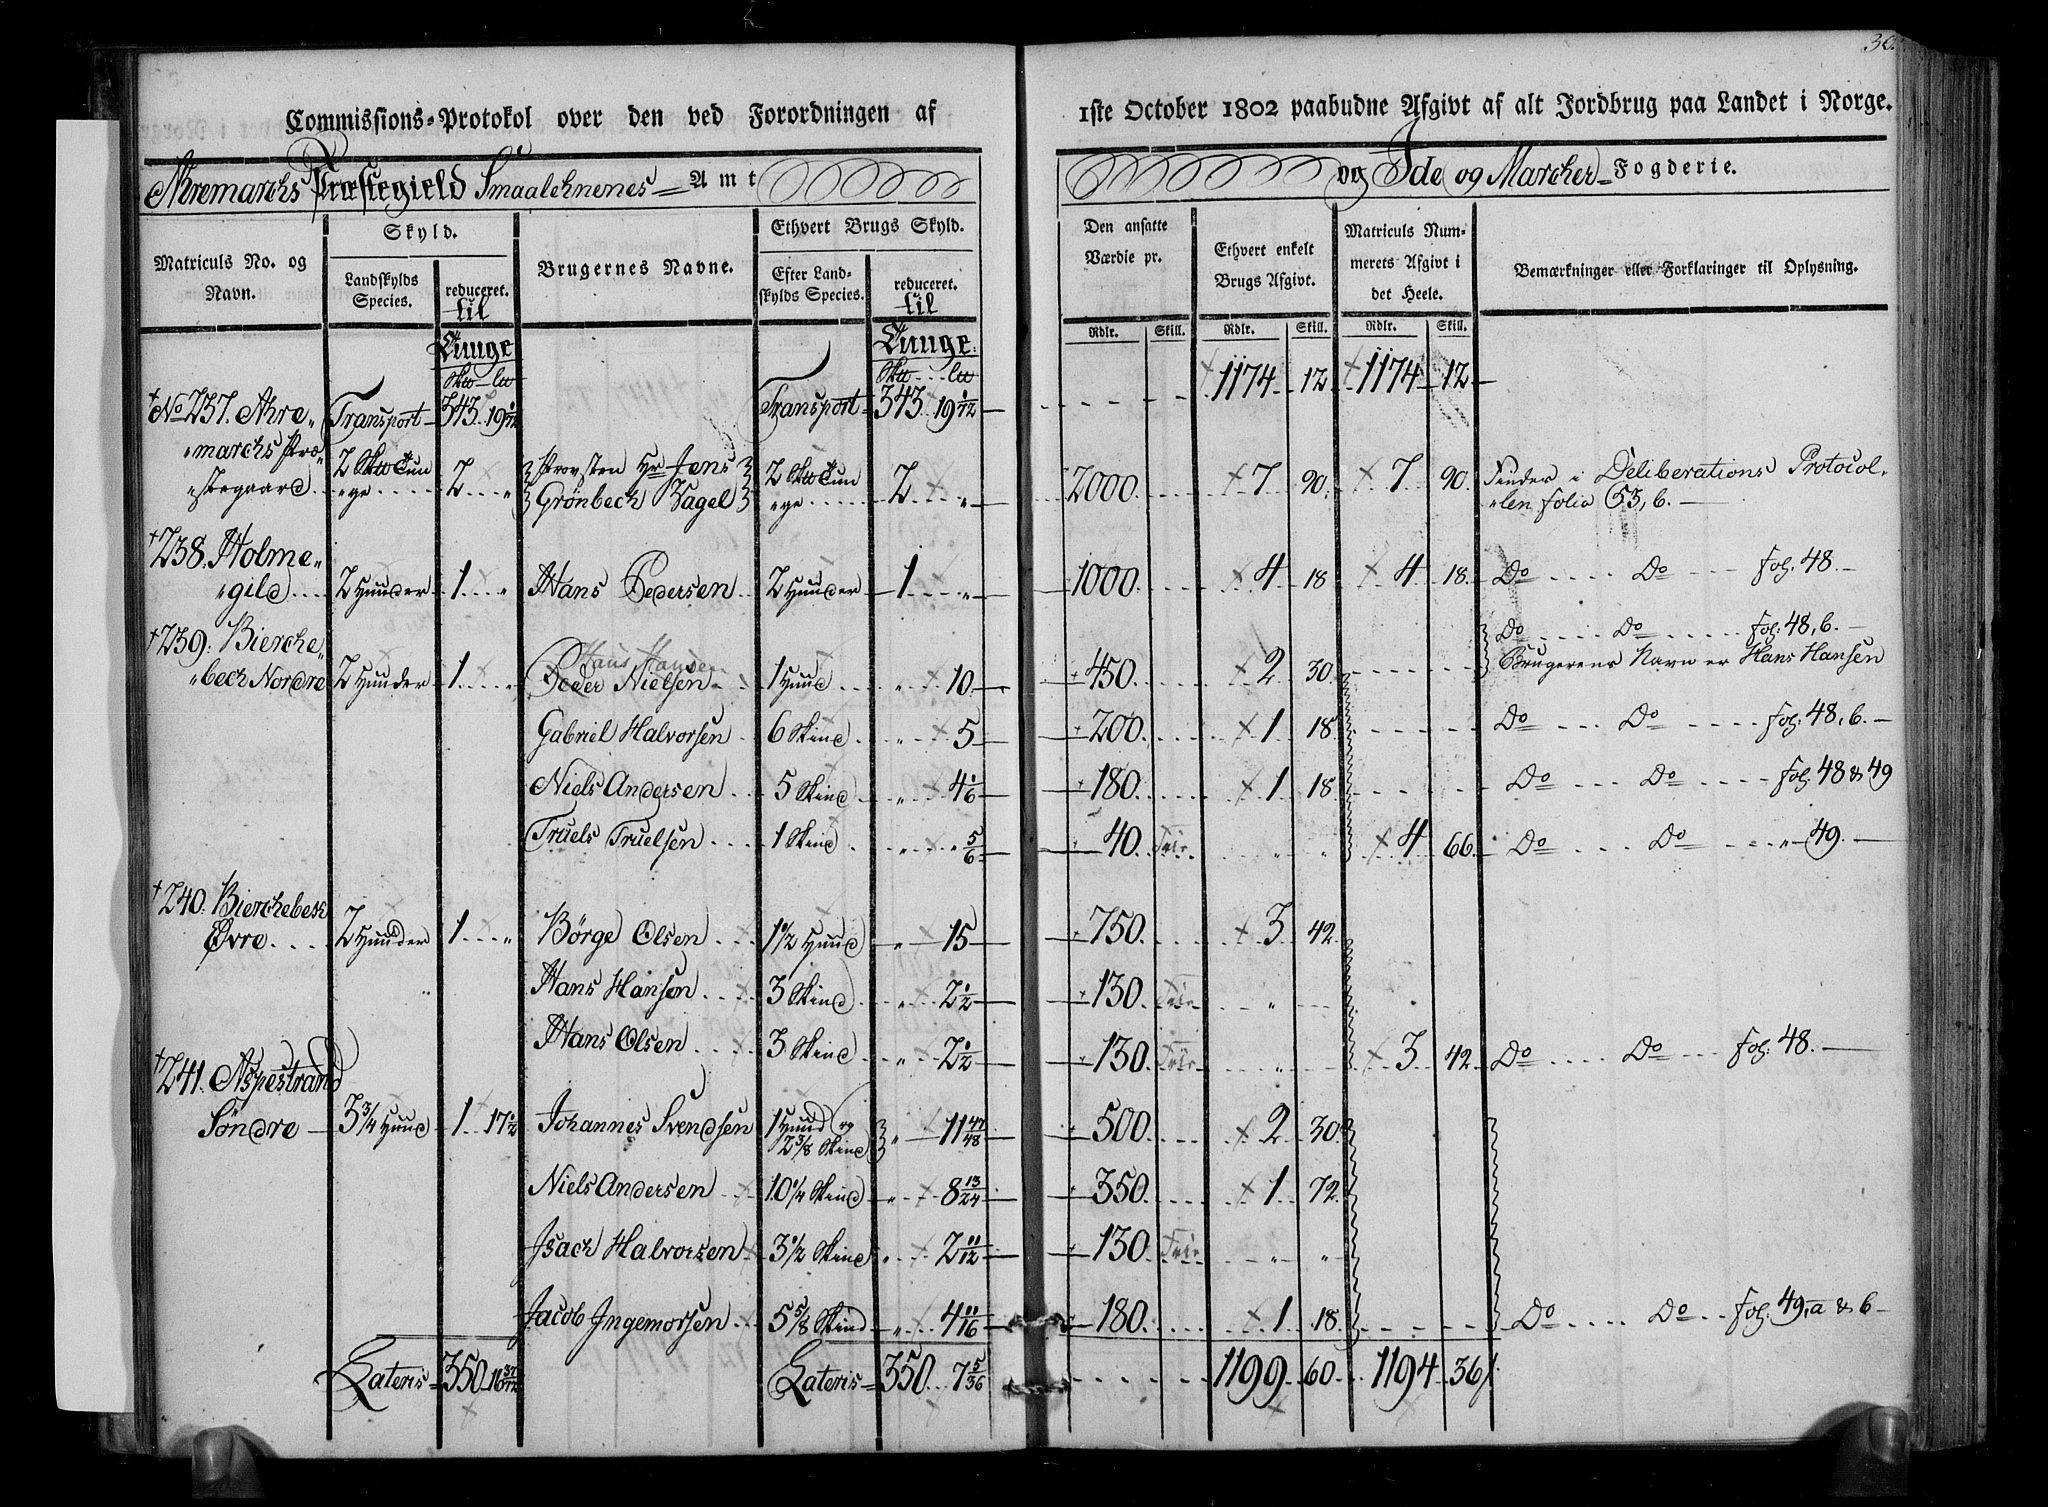 30.
Commissions-Protokol over den ved Forordningen af 1ste October 1802 paabudne Afgivt af alt Jordbrug paa Landet i Norge.
Aremarchs Præstegield Smaalehnenes Amt og Ide og Marcher Fogderie.
Matriculs No. og Navn. Skyld. Landskylds Species. reduceret til Tunge Brugernes Navne. Ethvert Brugs Skyld. Efter Landskylds Species. reduceret til Tunge
Den ansatte Værdie pr. Ethvert enkelt Brugs Afgivt. Matriculs Nummerets Afgivt i det Heele. Bemærkninger eller Forklaringer til Oplysning.
Rdlr. Skill. Rdlr. Skill. Rdlr. Skill.
Transport 343 Transport 343 1174 12 1174 12
No 237. Aremarchs Præstegaard 2 2 Provsten Hr Jens Grönbech Vagel 2 2 2000 7 90 7 90 Finder i Deliberations Protocollen folio 53, b.
238. Holmegild 2 Huuder 1 Hans Pedersen 2 Huuder 1 1000 4 18 4 18 Do Do Fol: 48.
239. Bierchebech Nordre 2 Huuder 1 Hans Hansen Peder Nielsen 1 Huud 10 450 2 30 Do Do Fol: 48, b.
Brugerens Navn er Hans Hansen
Gabriel Halvorsen 6 Skind 5 200 1 18 Do Do Fol: 48, b.
Niels Andersen 5 Skind 4 1/6 180 1 18 Do Do Fol: 48 & 49
Truels Truelsen 1 Skind 5/6 40 Frie 4 66 Do Do " 49.
240. Bierchebech Øvre 2 Huuder 1 Börge Olsen 1 1/2 Huud 15 750 3 42
Hans Hansen 3 Skind 2 1/2 130 Frie
Hans Olsen 3 Skind 2 1/2 130 Frie 3 42 Do Do Fol: 48.
241. Aspestrand Söndre 3 3/4 Huud 1 17 1/2 Johannes Svendsen 1 Huud og 2 3/8 Skind 11 47/48 500 2 30
Niels Andersen 10 1/4 Skind 8 13/24 350 1 72
Isach Halvorsen 3 1/2 Skind 2 11/12 130 Frie
Jacob Ingemorsen 5 5/8 Skind 4 11/16 180 1 18 Do Do Fol: 49, a & b
Lateris 350 16 37/72 Lateris 350 7 5/36 1199 60 1194 36